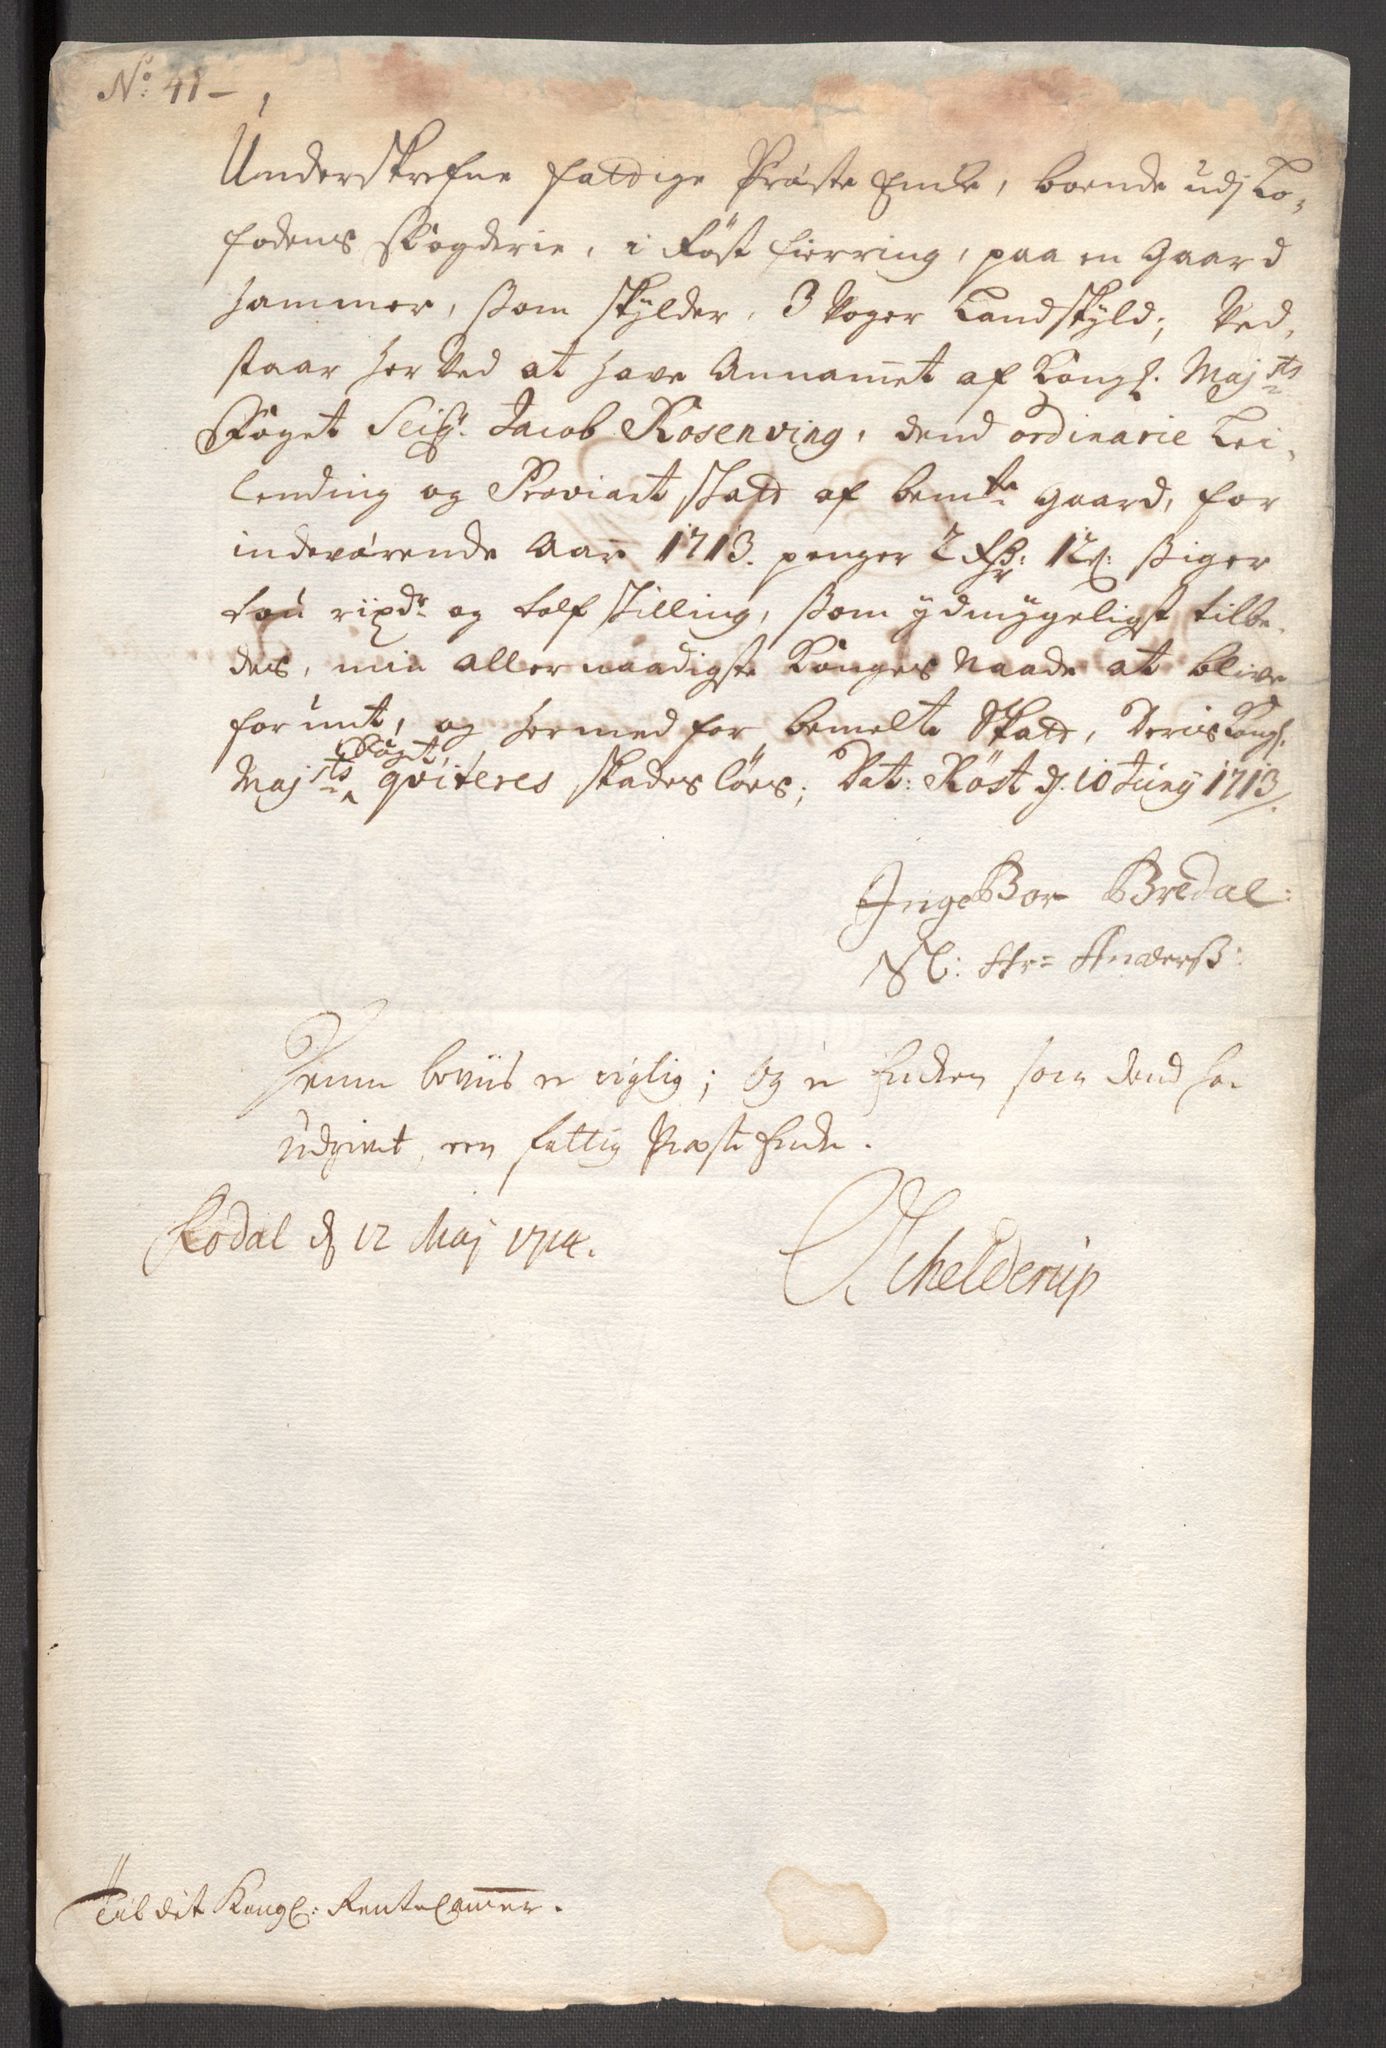 No: 41 –
Underskrefne fattige Præste Encke, boende udj Lo„
fodens fögderie, i Röst fierring, paa en Gaard
Hammer, som skylder, 3 Woger Landskyld; Ved„
staar her Ved at have Annammet af Kongl. Maj:sts
Foget Seigr. Jacob Rosenving, dend ordinarie Lei„
lending og Proviant skatt af bemte gaard, for
indeværende Aar 1713. penger 2 Rdr: 12 s: siger
tou rixdr og tolf skilling, som ydmygeligst tilbe„
des, min allernaadigste Konges Naade at blive
forunt, og hermed for bemelte Skatt, Deris Kongl.
Maj:sts Foget qviteres skadesløes; Dat: Röst d. 10 Juny 1713.
IngeBor Bredal:
Sl: Hr= Anderss:
Denne beviis er rigtig; og er Encken som dend har
udgivet, een fattig Præste Encke.
Bodal d 12 Maj 1714.
Schelderup
Til det Kongl: Rente Cammer.